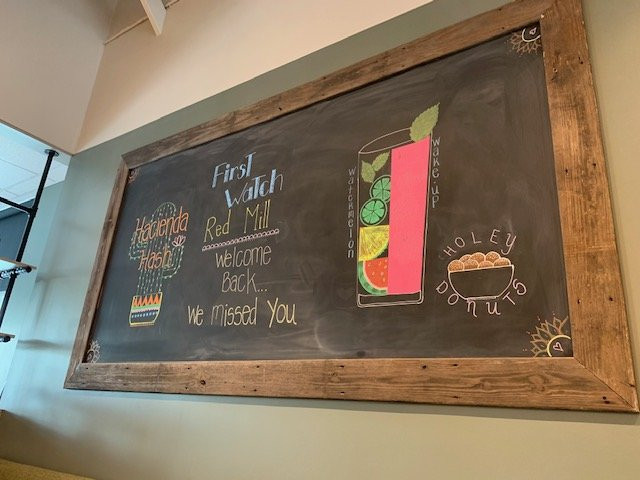 Hacienda
Hash
First
Watch
Red Mill
Welcome
Back...
We missed You
watermelon
wake up
HOLEY
DONUTS